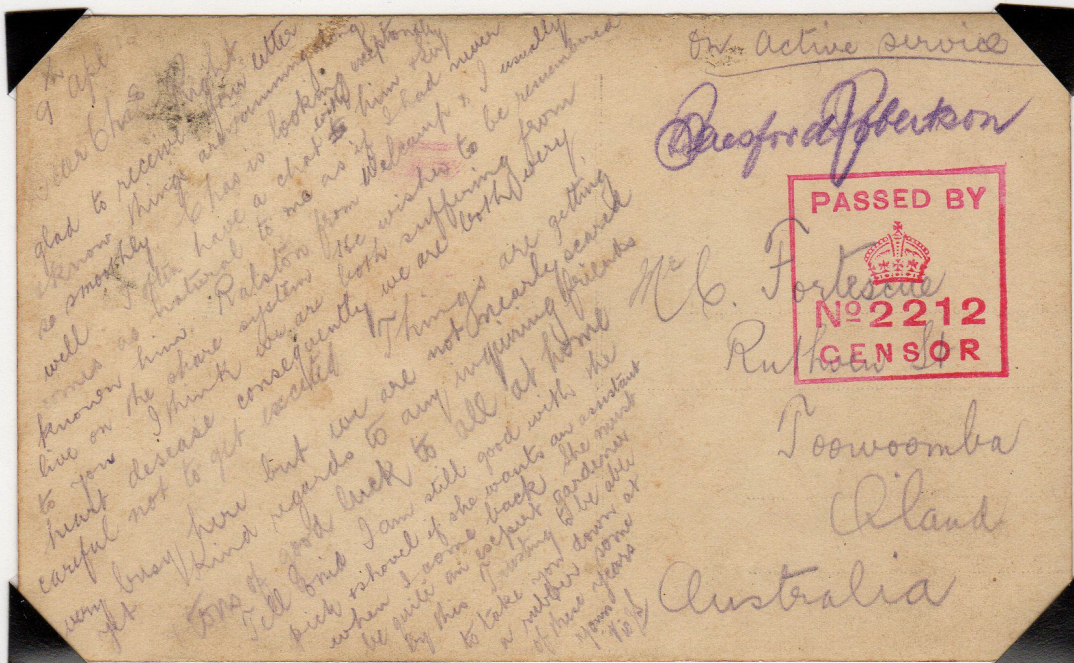 9th Apl
Dear Chas Right
glad to receive your letter
& know things are humming along
so smoothly Chas is looking exceptionally
well I often have a chat with him &
comes as natural to me as if I had never
known him. Ralston from Welcamp & I usually
live on the share system He wishes to be remembered
to you I think we are both suffering from
heart desease consequently we are both very
careful not to get excited Things are getting
very busy here but we are not nearly scared
yet Kind regards to any inquiring friends
tons of good luck to all at home
Tell Enid I am still good with the
pick & shovel if she wants an assistant
when I come back She must
be quite an expert gardener
by this Trusting to be able
to take you down at
a rubber some
of these years
Yours
On active service
Beresford Robertson
PASSED BY
No 2212
CENSOR
Mr C. Fortescue
Ruthven St
Toowoomba
Qland
Australia